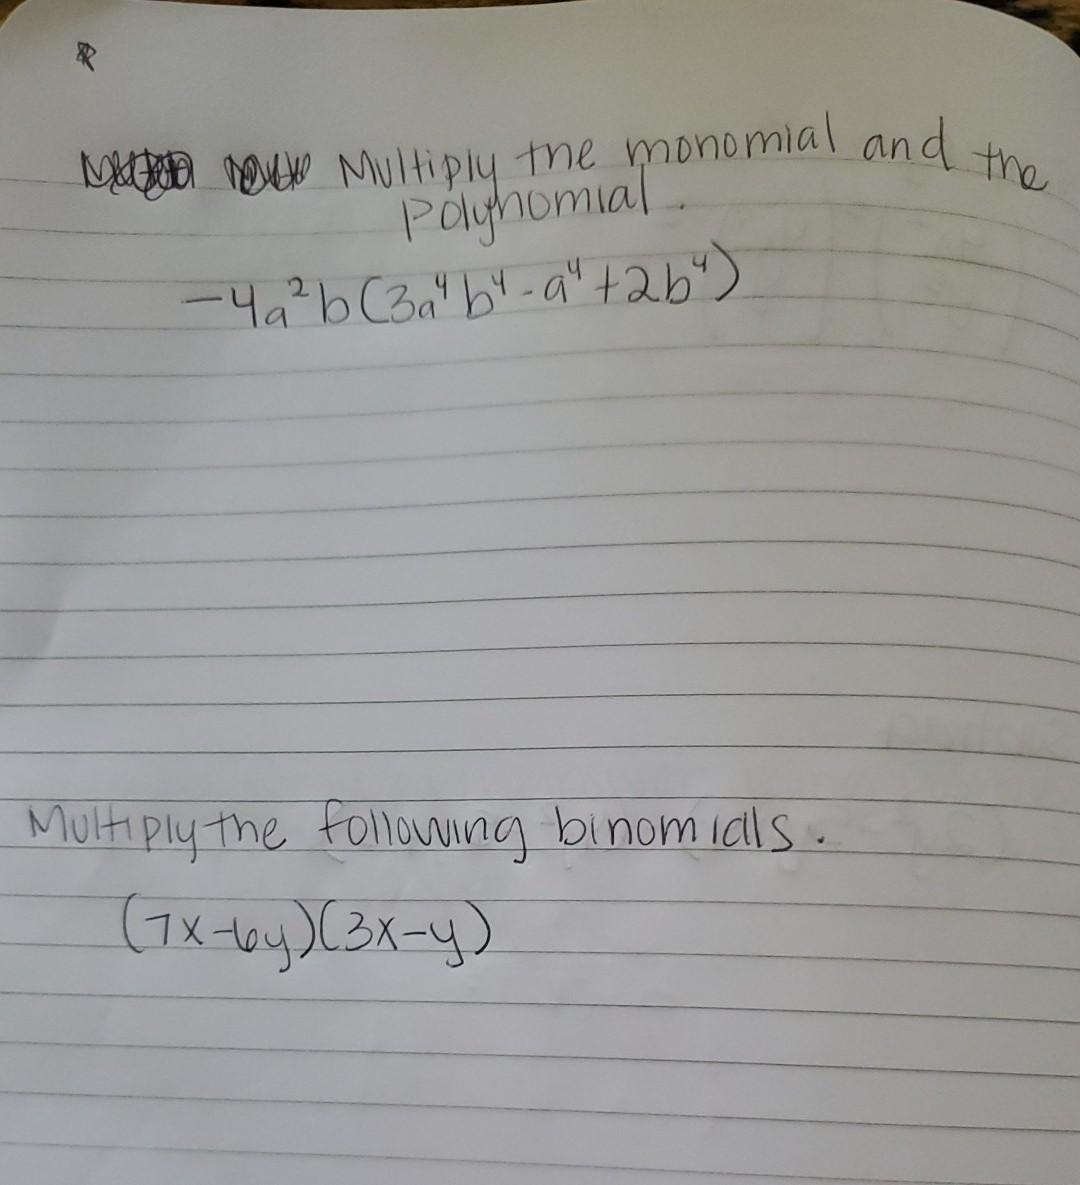 Multiply the monomial and the
Polynomial.
-4a²b(3a⁴b⁴-a⁴+2b⁴)
Multiply the following binomials.
(7x-6y)(3x-y)